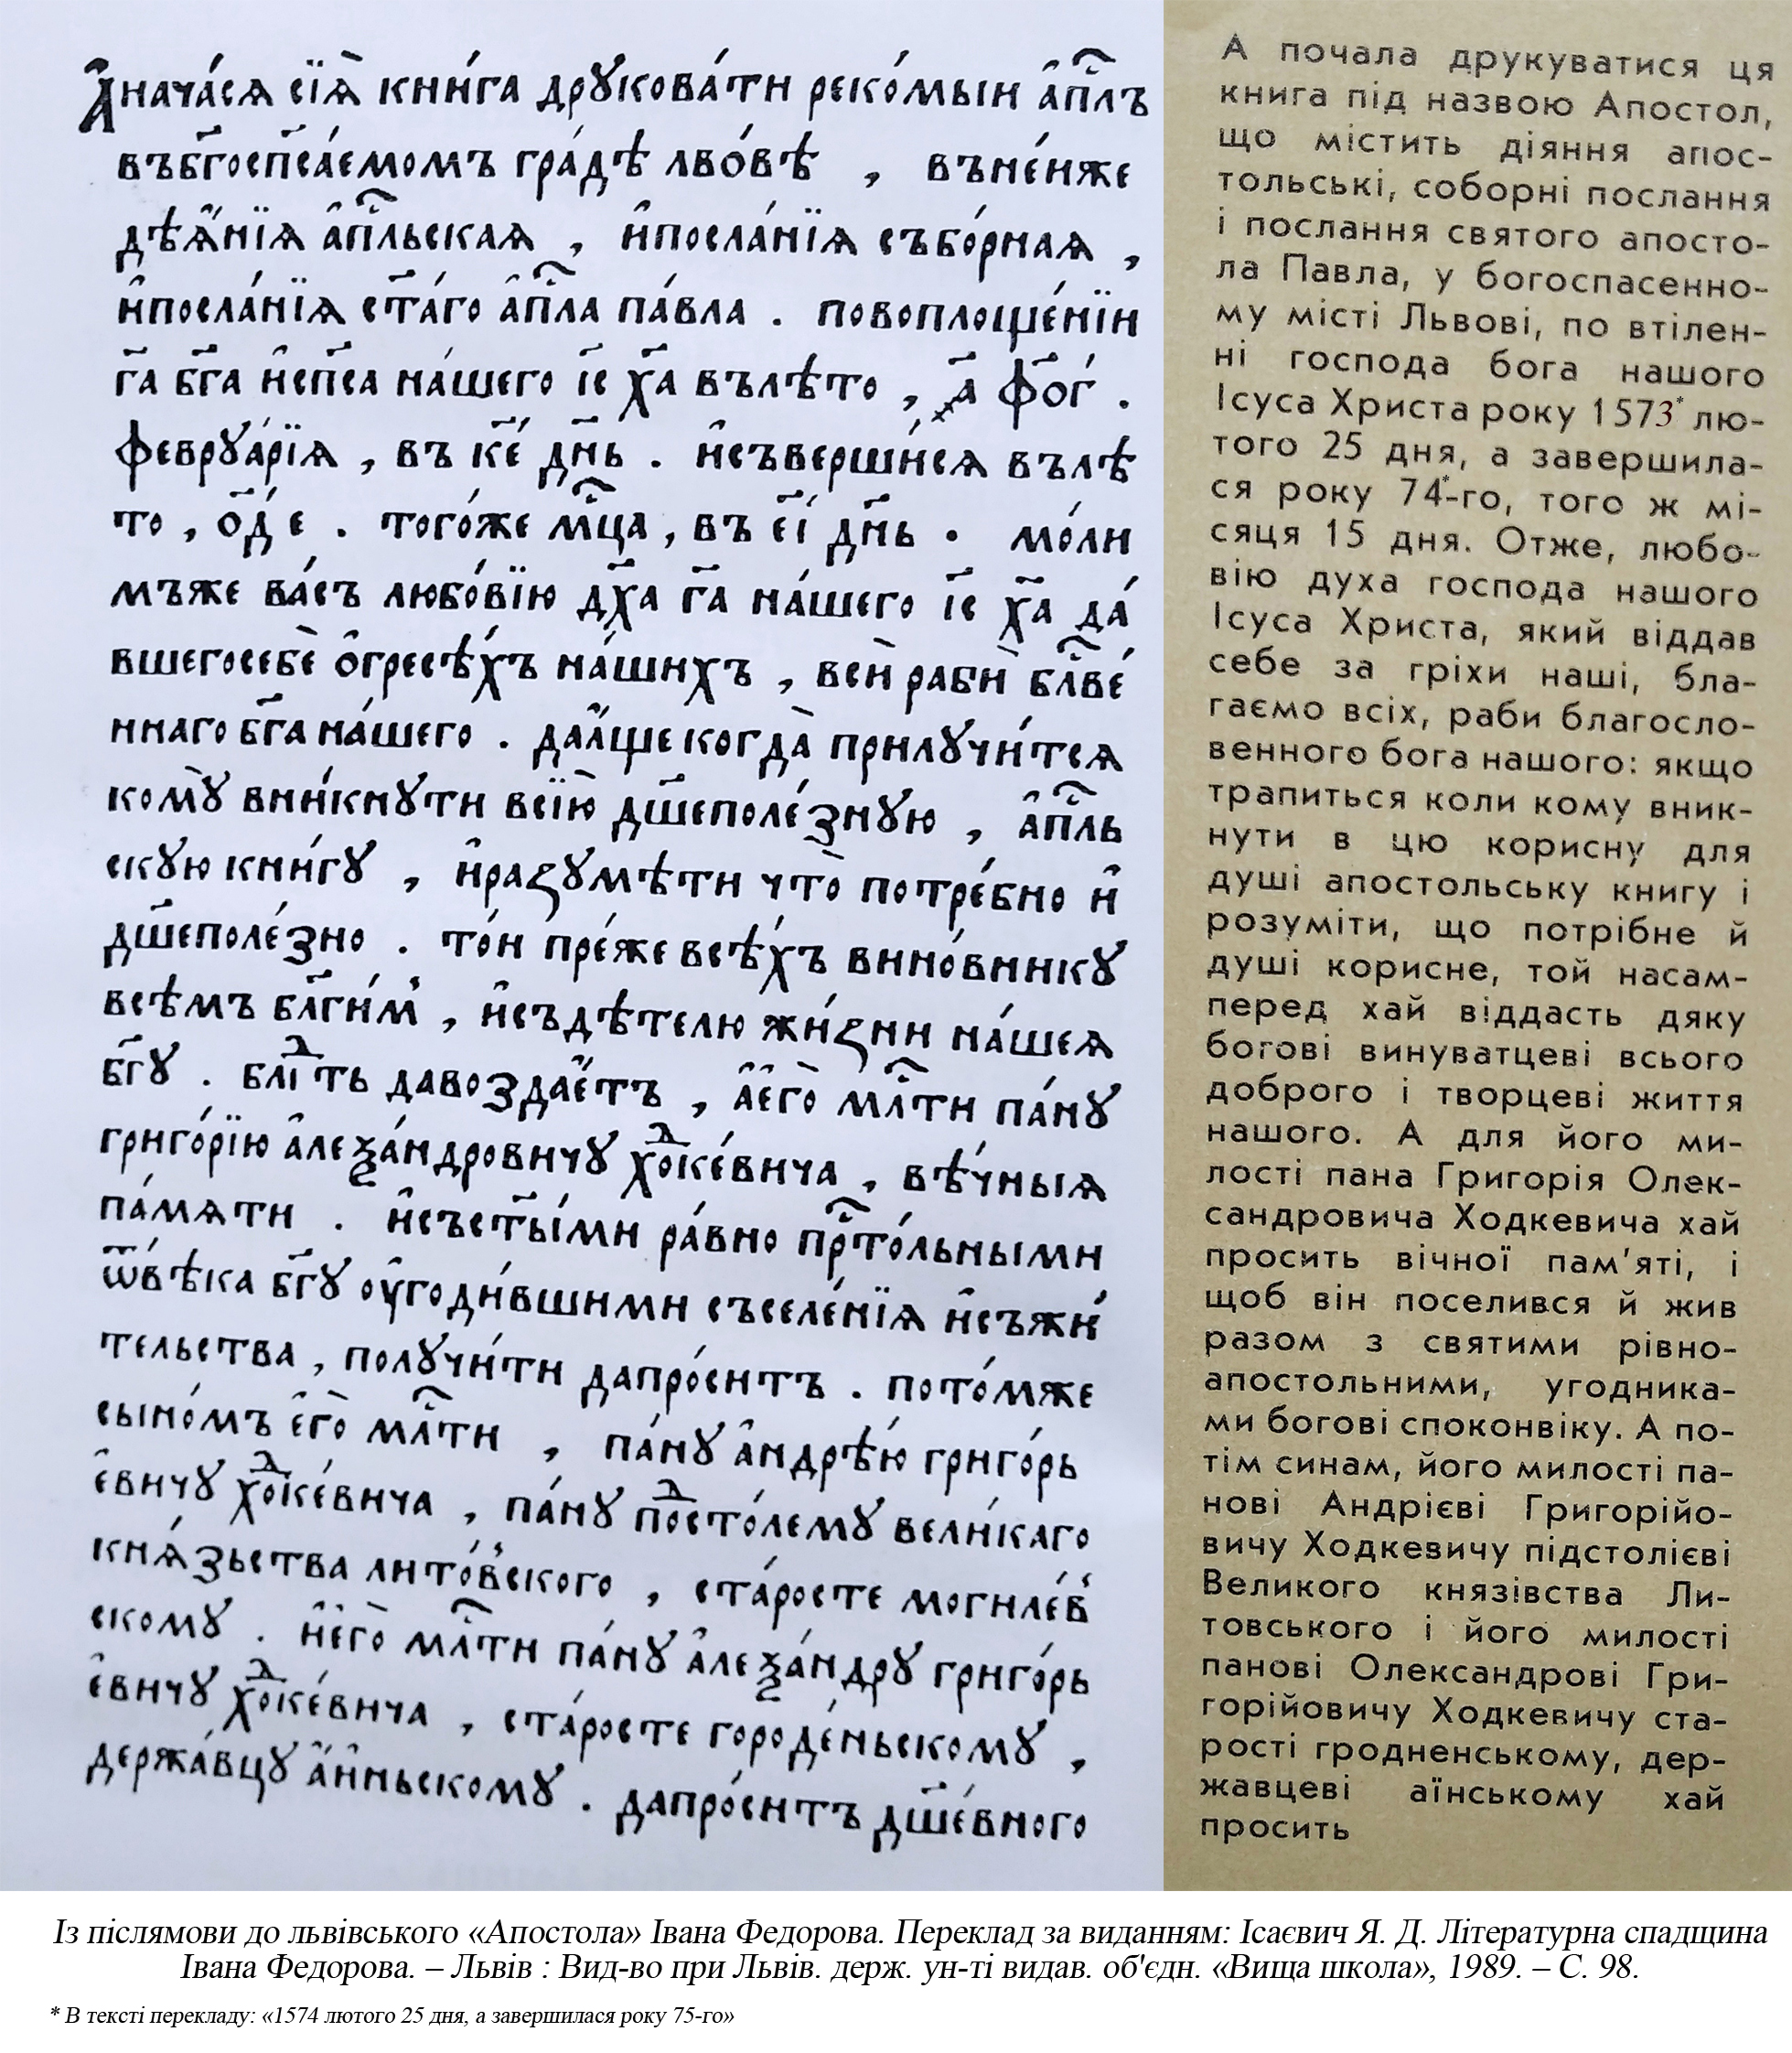 Анача́сѧ сїѧ̀ кни́га дрꙋкова́ти реко́мыи а҆пⷭ҇лъ
въбг҃оспса́емомъ гра́дѣ льво́вѣ , въне́иже
дѣѧ҆́нїѧ а҆пⷭ҇льскаѧ , и҆посла́нїѧ събо́рнаѧ ,
и҆посла́нїѧ ст҃а́го а҆пⷭ҇ла па́вла . повоплоще́нїи
г҃а бг҃а и҆сп҃са на́шего і҃с х҃а вълѣ́то , ҂а҃ фо҃г .
феврꙋа́рїѧ , въ к҃е дн҃ь . и҆съверши́сѧ вълѣ
то , о҃д е . того́же мⷭ҇ца , въ е҃і дн҃ь . мо́ли
мъже ва́съ любо́вїю дх҃а г҃а на́шего і҃с х҃а да́
вшегосебѐ о҆гресѣ́хъ на́шихъ , всѝ рабѝ блⷭ҇ве́
ннаго бг҃а на́шего . даа҆́ще когда̀ прилꙋчи́тсѧ
комꙋ̀ вни́кнꙋти всїю̀ дш҃еполе́знꙋю , а҆пⷭ҇ль
скꙋю кни́гꙋ , и҆раꙁꙋмѣ́ти что̀ потре́бно и҆
дш҃еполе́зно . то́и пре́же всѣ́хъ вино́вникꙋ
всѣ́мъ бл҃ги́м , и҆съдѣ́телю жи́ꙁни на́шеѧ
бг҃ꙋ . блгⷣть давоздае҆́тъ , а҆е҆го̀ млⷭ҇ти па́нꙋ
григо́рїю а҆леѯа́ндровичꙋ хоⷣке́вича , вѣ́чныѧ
па́мѧти . и҆съст҃ы́ми ра́вно прⷭ҇то́льными
ѿвѣ́ка бг҃ꙋ оу҆годи́вшими съселе́нїѧ и҆съжи́
тельства , полꙋчи́ти дапро́ситъ . пото́мже
сыно́мъ е҆го̀ млⷭ҇ти , па́нꙋ а҆ндрѣ́ю григо́рь
е҆вичꙋ хоⷣке́вича , па́нꙋ поⷣсто́лемꙋ вели́каго
кнѧ́зьства лито́вского , ста́росте могиле́в
скомꙋ . и҆е҆го̀ млⷭ҇ти па́нꙋ а҆леѯа́ндрꙋ григо́рь
е҆вичꙋ хоⷣке́вича , ста́росте городе́ньскомꙋ ,
держа́вцꙋ а҆́иньскомꙋ . дапро́ситъ дш҃е́вного
А почала друкуватися ця
книга під назвою Апостол,
що містить діяння апос-
тольські, соборні послання
і послання святого апосто-
ла Павла, у богоспасенно-
му місті Львові, по втілен-
ні господа бога нашого
Ісуса Христа року 1573* лю-
того 25 дня, а завершила-
ся року 74*-го, того ж мі-
сяця 15 дня. Отже, любо-
вію духа господа нашого
Ісуса Христа, який віддав
себе за гріхи наші, бла-
гаємо всіх, раби благосло-
венного бога нашого: якщо
трапиться коли кому вник-
нути в цю корисну для
душі апостольську книгу і
розуміти, що потрібне й
душі корисне, той насам-
перед хай віддасть дяку
богові винуватцеві всього
доброго і творцеві життя
нашого. А для його ми-
лості пана Григорія Олек-
сандровича Ходкевича хай
просить вічної пам'яті, і
щоб він поселився й жив
разом з святими рівно-
апостольними, угодника-
ми богові споконвіку. А по-
тім синам, його милості па-
нові Андрієві Григорійо-
вичу Ходкевичу підстолієві
Великого князівства Ли-
товського і його милості
панові Олександрові Гри-
горійовичу Ходкевичу ста-
рості гродненському, дер-
жавцеві аїнському хай
просить
Із післямови до львівського «Апостола» Івана Федорова. Переклад за виданням: Ісаєвич Я. Д. Літературна спадщина
Івана Федорова. – Львів : Вид-во при Львів. держ. ун-ті видав. об'єдн. «Вища школа», 1989. – С. 98.
* В тексті перекладу: «1574 лютого 25 дня, а завершилася року 75-го»